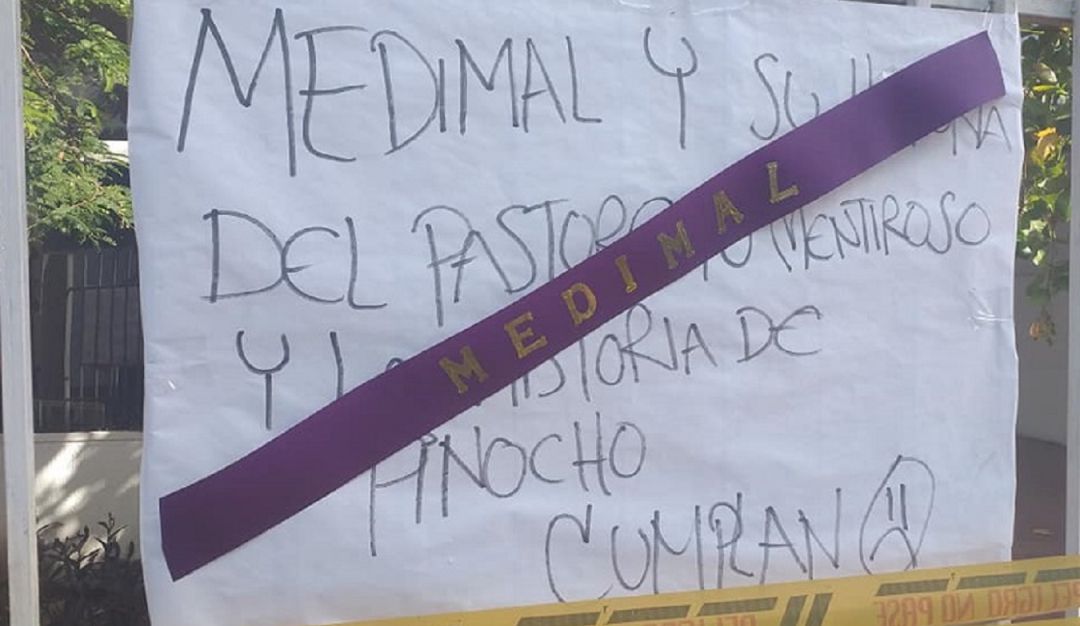 MEDIMAL Y SU
DEL PASTORC MENTIROSO
Y HISTORIA DE
PINOCHO
CUMPLAN
MEDIMAL
PELIGRO NO PASE